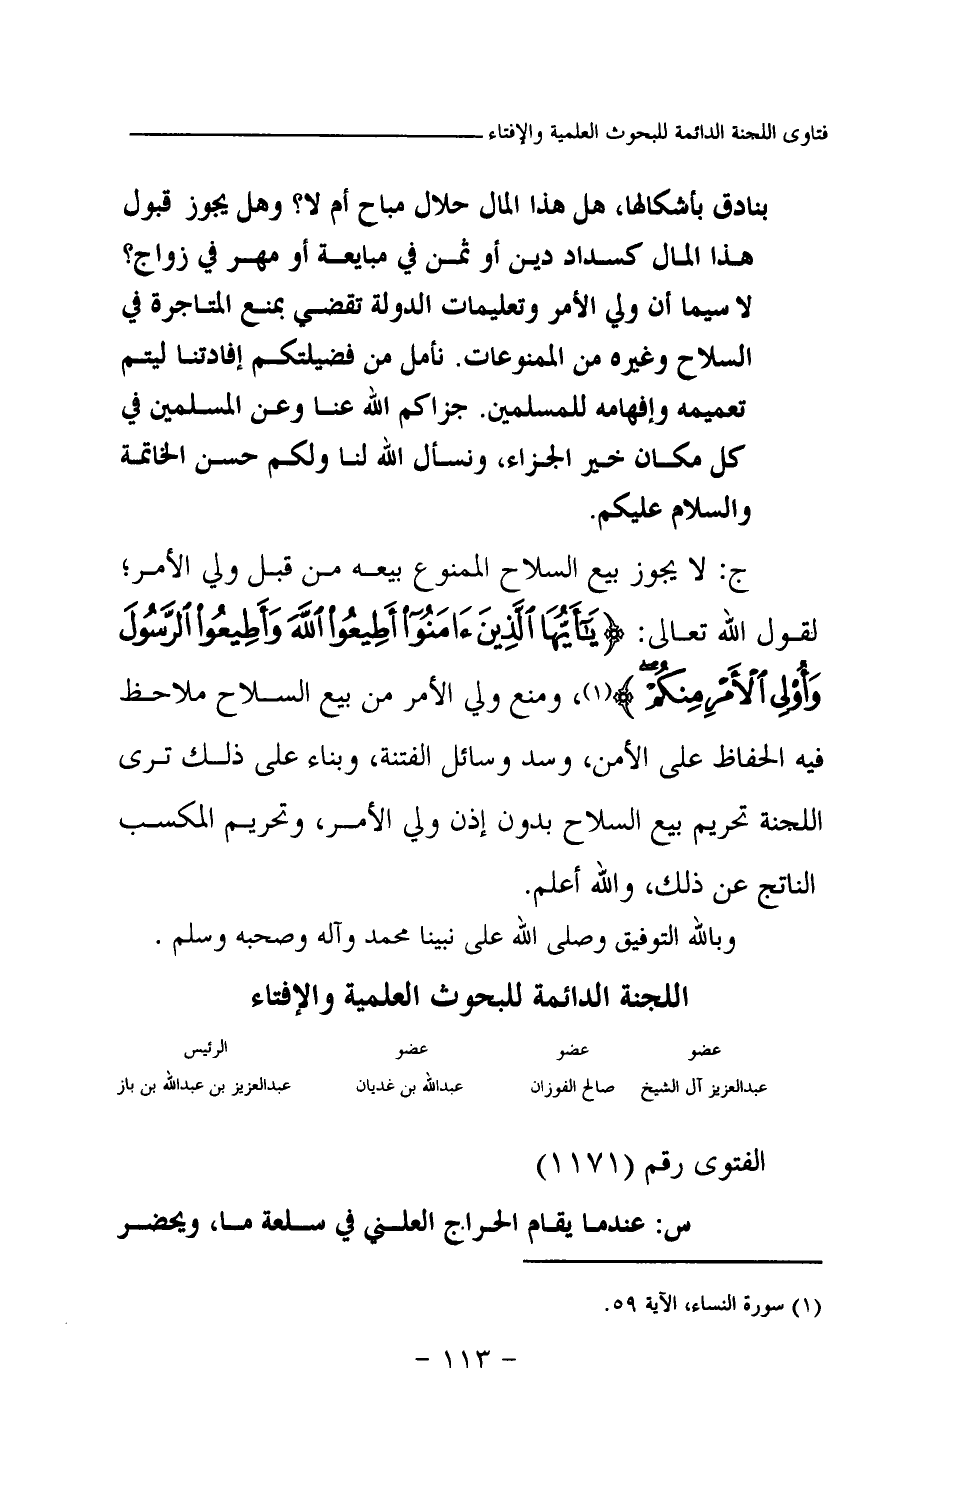 فتاوى اللجنة الدائمة للبحوث العلمية والإفتاء
بنادق بأشكالها، هل هذا المال حلال مباح أم لا؟ وهل يجوز قبول
هذا المال كسداد دين أو ثمن في مبايعة أو مهر في زواج؟
لا سيما أن ولي الأمر وتعليمات الدولة تقضي بمنع المتاجرة في
السلاح وغيره من الممنوعات. نأمل من فضيلتكم إفادتنا ليتم
تعميمه وإفهامه للمسلمين. جزاكم الله عنا وعن المسلمين في
كل مكان خير الجزاء، ونسأل الله لنا ولكم حسن الخاتمة
والسلام عليكم.
ج: لا يجوز بيع السلاح الممنوع بيعه من قبل ولي الأمر؛
لقول الله تعالى: ﴿يَٰٓأَيُّهَا ٱلَّذِينَ ءَامَنُوٓا۟ أَطِيعُوا۟ ٱللَّهَ وَأَطِيعُوا۟ ٱلرَّسُولَ
وَأُو۟لِى ٱلْأَمْرِ مِنكُمْ ۖ﴾(١)، ومنع ولي الأمر من بيع السلاح ملاحظ
فيه الحفاظ على الأمن، وسد وسائل الفتنة، وبناء على ذلك ترى
اللجنة تحريم بيع السلاح بدون إذن ولي الأمر، وتحريم المكسب
الناتج عن ذلك، والله أعلم.
وبالله التوفيق وصلى الله على نبينا محمد وآله وصحبه وسلم .
اللجنة الدائمة للبحوث العلمية والإفتاء
عضو عضو عضو الرئيس
عبدالعزيز آل الشيخ صالح الفوزان عبدالله بن غديان عبدالعزيز بن عبدالله بن باز
الفتوى رقم (١١٧١)
س: عندما يقام الحراج العلني في سلعة ما، ويحضر
(١) سورة النساء، الآية ٥٩.
- ١١٣ -